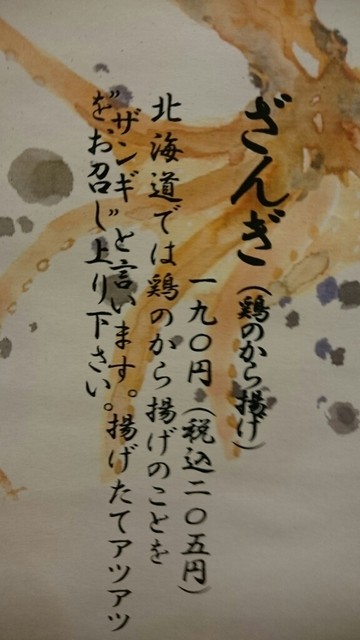 ざんぎ（鶏のから揚げ）
一九〇円（税込二〇五円）
北海道では鶏のから揚げのことを
”ザンギ”と言います。揚げたてアツアツ
をお召し上り下さい。